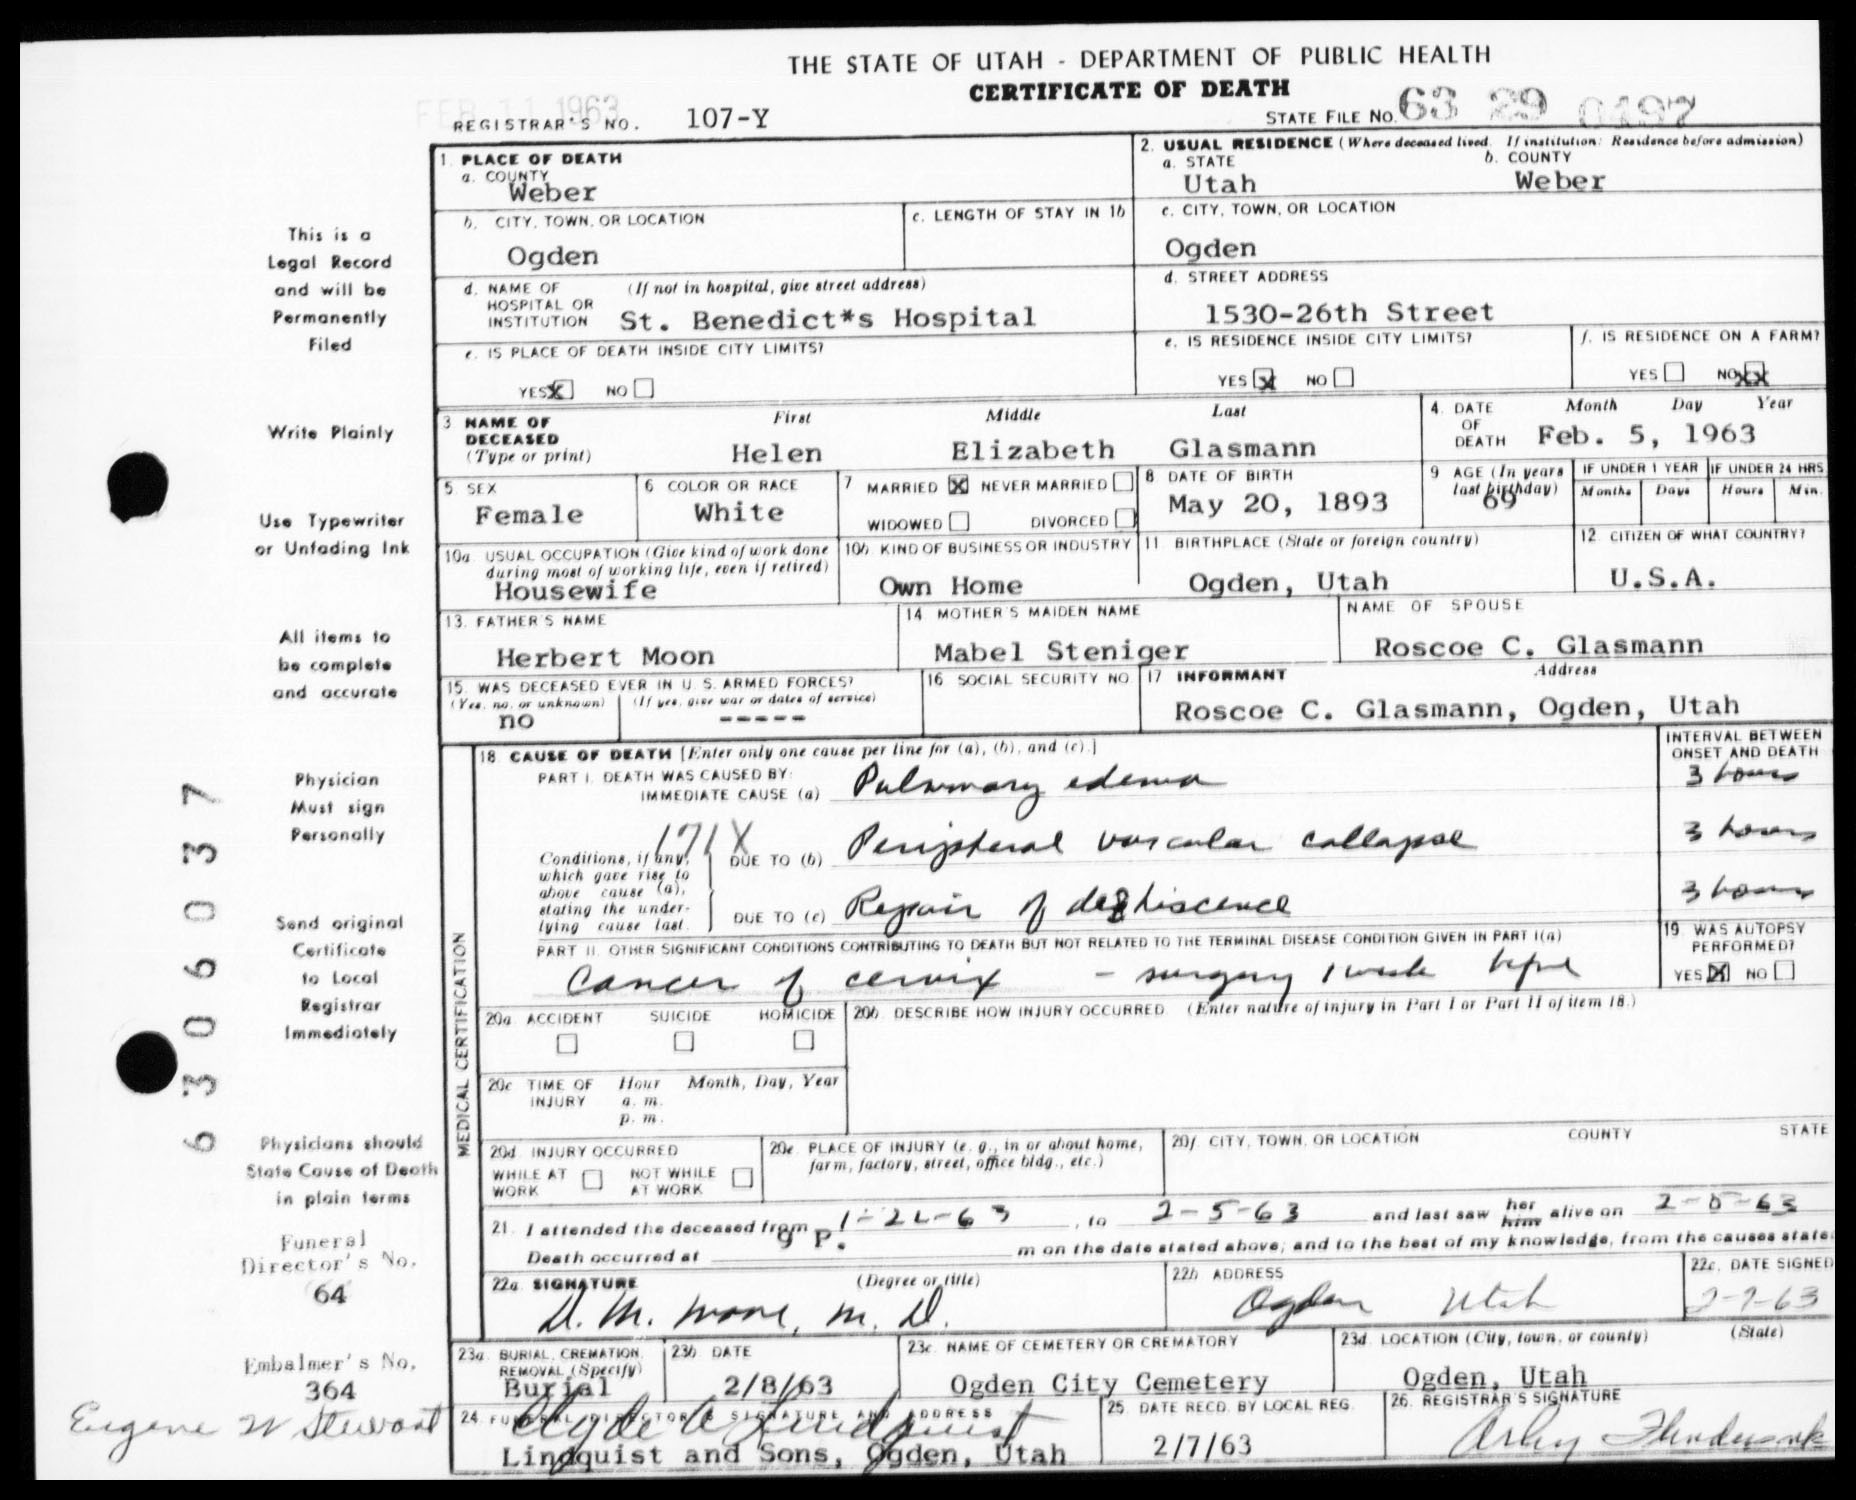 THE STATE OF UTAH - DEPARTMENT OF PUBLIC HEALTH
CERTIFICATE OF DEATH
FEB 11 1963
REGISTRAR'S NO. 107-Y
STATE FILE NO. 63 29 0497
1. PLACE OF DEATH
a. COUNTY
Weber
2. USUAL RESIDENCE (Where deceased lived. If institution: Residence before admission)
a. STATE b. COUNTY
Utah Weber
b. CITY, TOWN, OR LOCATION
Ogden
c. LENGTH OF STAY IN 1b
c. CITY, TOWN, OR LOCATION
Ogden
d. NAME OF HOSPITAL OR INSTITUTION (If not in hospital, give street address)
St. Benedict*s Hospital
d. STREET ADDRESS
1530-26th Street
e. IS PLACE OF DEATH INSIDE CITY LIMITS?
YES X NO
e. IS RESIDENCE INSIDE CITY LIMITS?
YES X NO
f. IS RESIDENCE ON A FARM?
YES NO XX
3 NAME OF DECEASED (Type or print)
First Middle Last
Helen Elizabeth Glasmann
4. DATE OF DEATH
Month Day Year
Feb. 5, 1963
5. SEX
Female
6 COLOR OR RACE
White
7 MARRIED X NEVER MARRIED
WIDOWED DIVORCED
8 DATE OF BIRTH
May 20, 1893
9 AGE (In years last birthday)
69
IF UNDER 1 YEAR
Months Days
IF UNDER 24 HRS.
Hours Min.
10a. USUAL OCCUPATION (Give kind of work done during most of working life, even if retired)
Housewife
10b. KIND OF BUSINESS OR INDUSTRY
Own Home
11. BIRTHPLACE (State or foreign country)
Ogden, Utah
12. CITIZEN OF WHAT COUNTRY?
U.S.A.
13. FATHER'S NAME
Herbert Moon
14. MOTHER'S MAIDEN NAME
Mabel Steniger
NAME OF SPOUSE
Roscoe C. Glasmann
15. WAS DECEASED EVER IN U. S. ARMED FORCES?
(Yes, no, or unknown) (If yes, give war or dates of service)
no -----
16. SOCIAL SECURITY NO.
17 INFORMANT Address
Roscoe C. Glasmann, Ogden, Utah
MEDICAL CERTIFICATION
18. CAUSE OF DEATH [Enter only one cause per line for (a), (b), and (c).]
INTERVAL BETWEEN ONSET AND DEATH
PART I. DEATH WAS CAUSED BY:
IMMEDIATE CAUSE (a) Pulmonary edema 3 hours
171X
Conditions, if any, which gave rise to above cause (a), stating the underlying cause last.
DUE TO (b) Peripheral vascular collapse 3 hours
DUE TO (c) Repair of dehiscence 3 hours
PART II. OTHER SIGNIFICANT CONDITIONS CONTRIBUTING TO DEATH BUT NOT RELATED TO THE TERMINAL DISEASE CONDITION GIVEN IN PART I(a)
Cancer of cervix - surgery 1 week before
19. WAS AUTOPSY PERFORMED?
YES X NO
20a. ACCIDENT SUICIDE HOMICIDE
20b. DESCRIBE HOW INJURY OCCURRED (Enter nature of injury in Part I or Part II of item 18.)
20c TIME OF INJURY Hour Month, Day, Year
a. m.
p. m.
20d. INJURY OCCURRED
WHILE AT WORK NOT WHILE AT WORK
20e. PLACE OF INJURY (e. g., in or about home, farm, factory, street, office bldg., etc.)
20f. CITY, TOWN, OR LOCATION COUNTY STATE
21. I attended the deceased from 1-22-63, to 2-5-63 and last saw her him alive on 2-5-63
Death occurred at 9 P. m on the date stated above; and to the best of my knowledge, from the causes state
22a. SIGNATURE (Degree or title)
D. M. Moore, M. D.
22b. ADDRESS
Ogden Utah
22c. DATE SIGNED
2-7-63
23a. BURIAL, CREMATION, REMOVAL (Specify)
Burial
23b DATE
2/8/63
23c. NAME OF CEMETERY OR CREMATORY
Ogden City Cemetery
23d. LOCATION (City, town, or county) (State)
Ogden, Utah
24. FUNERAL DIRECTOR'S SIGNATURE AND ADDRESS
Clyde A Lindquist
Lindquist and Sons, Ogden, Utah
25. DATE RECD. BY LOCAL REG.
2/7/63
26. REGISTRAR'S SIGNATURE
This is a
Legal Record
and will be
Permanently
Filed
Write Plainly
Use Typewriter
or Unfading Ink
All items to
be complete
and accurate
Physician
Must sign
Personally
Send original
Certificate
to Local
Registrar
Immediately
Physicians should
State Cause of Death
in plain terms
Funeral
Director's No.
64
Embalmer's No.
364
Eugene W Stewart
6306037